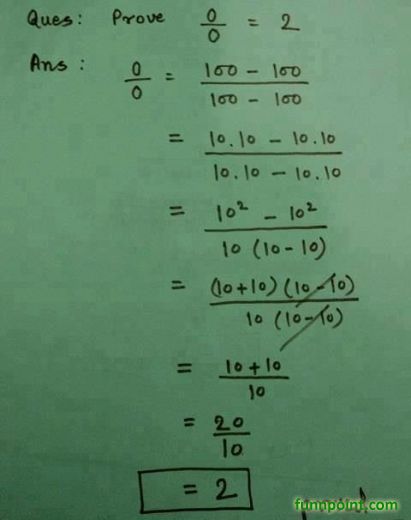 Ques: Prove 0/0 = 2
Ans: 0/0 = (100 - 100)/(100 - 100)
= (10.10 - 10.10)/(10.10 - 10.10)
= (10² - 10²)/(10 (10 - 10))
= ((10+10) (10 - 10))/(10 (10 - 10))
= (10 + 10)/10
= 20/10
= 2
funnpoint.com